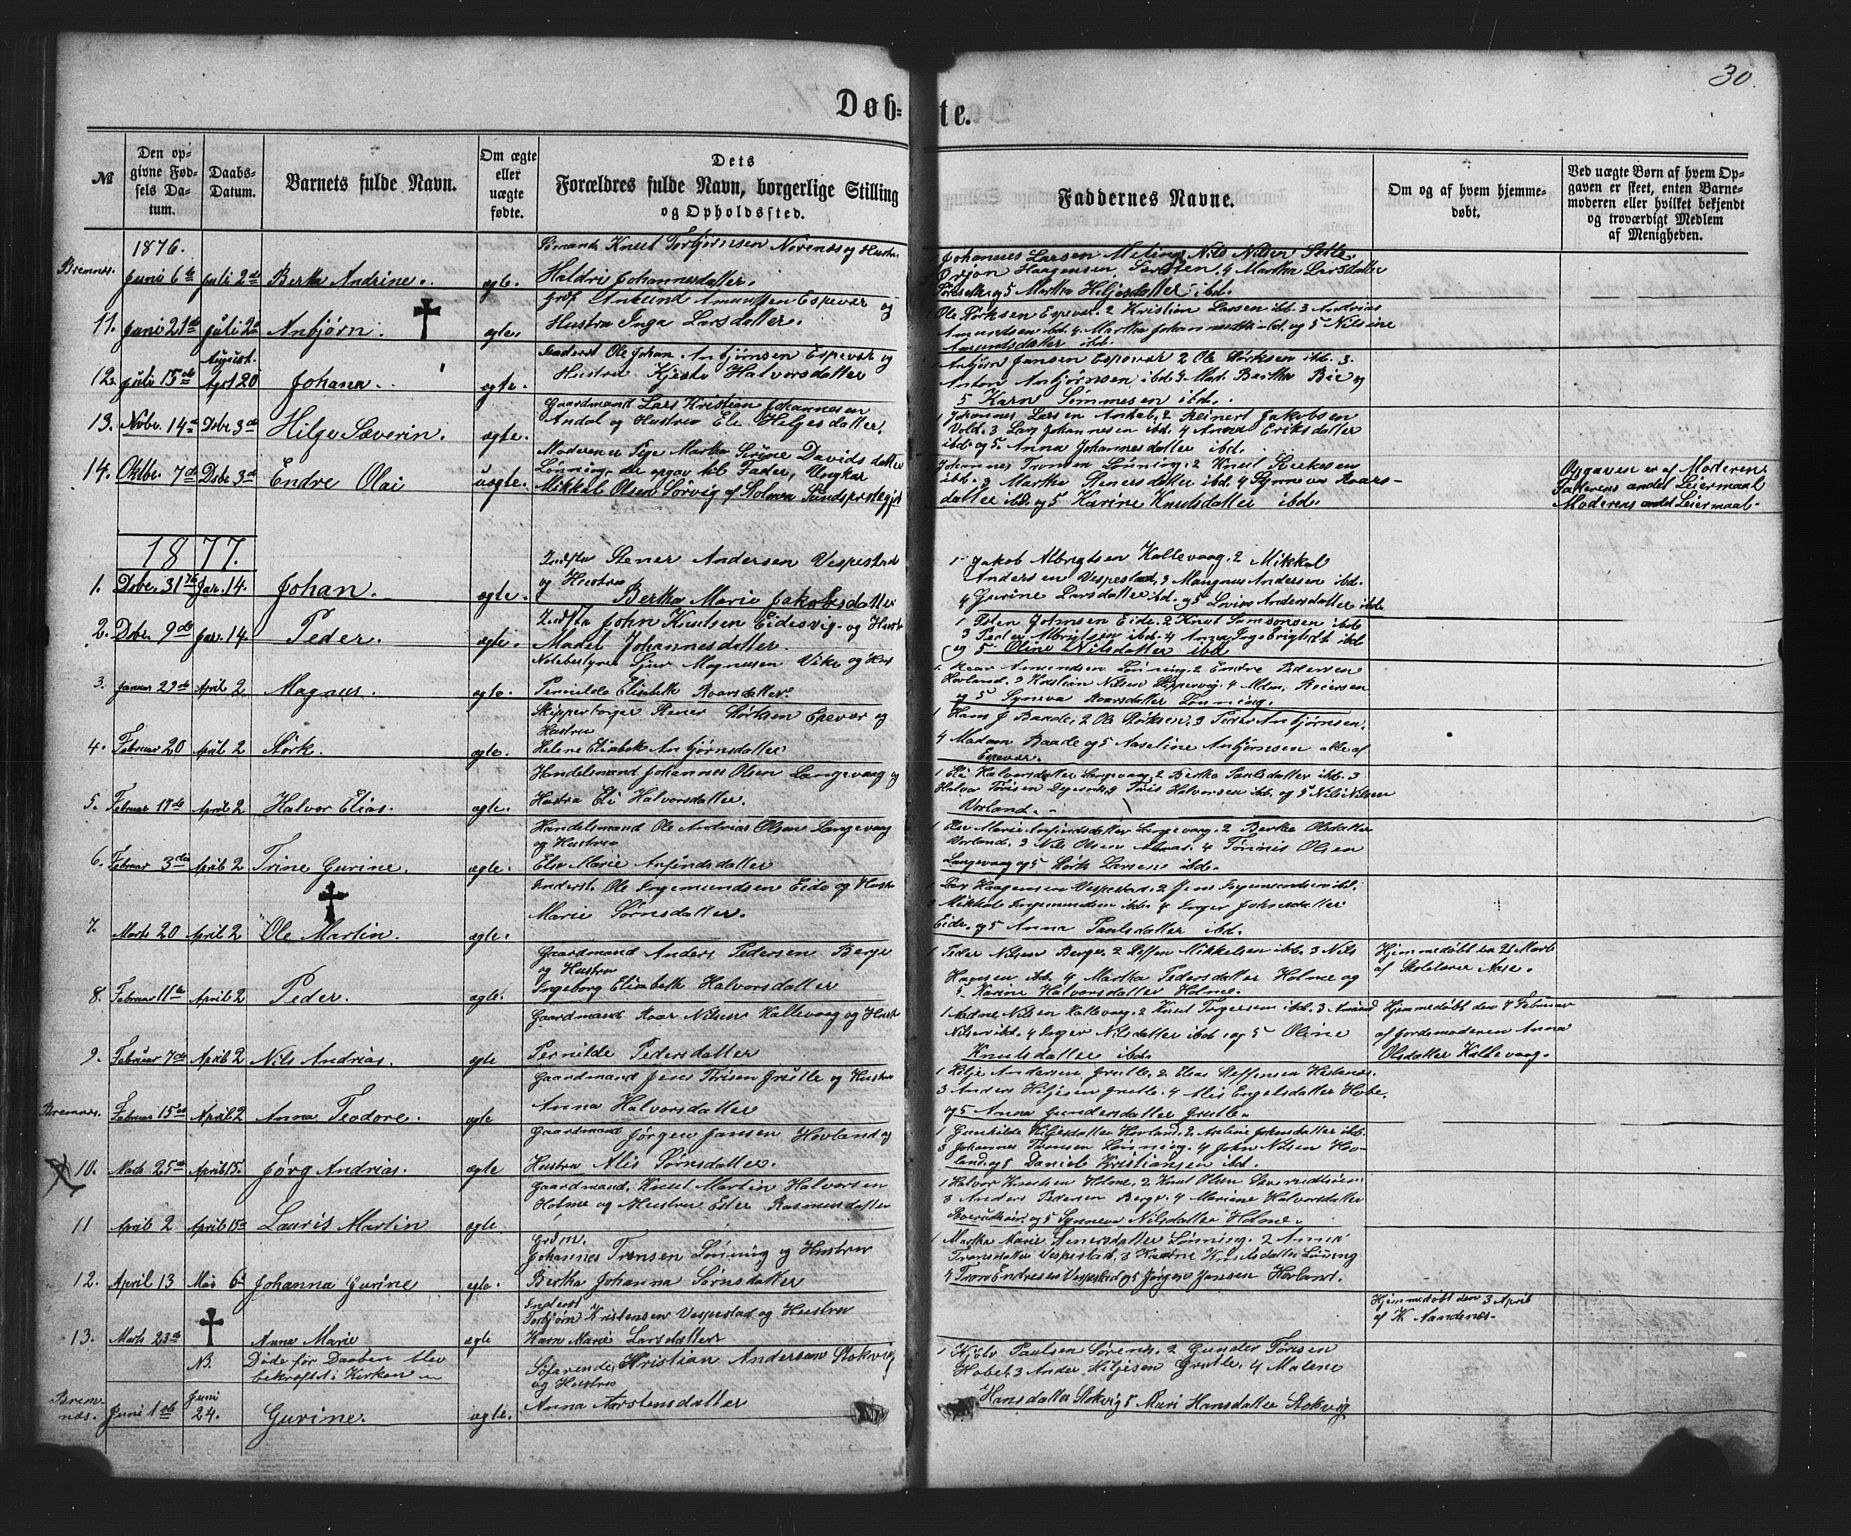 30.
Døbte.
№
Den opgivne Fødsels Datum.
Daabs-Datum.
Barnets fulde Navn.
Om ægte eller uægte fødte.
Dets Forældres fulde Navn, borgerlige Stilling og Opholdssted.
Faddernes Navne.
Om og af hvem hjemmedøbt.
Ved uægte Børn af hvem Opgaven er skeet, enten Barnemoderen eller hvilket bekjendt og troværdigt Medlem af Menigheden.
1876.
Bremnes. Juni 6te Juli 2d Berta Andrine. ægte. Sømand Knut Torbjørnsen og Hustru
Johannesdatter.
Johannes Larsen Meling, Nils Nilsen
Haagensen 4 Martha Larsdatter
og 5 Martha Hiljesdatter ibd.
11. Juni 21de Juli 2d Anbjørn. ægte. Amundsen Espevær og
Hustru Inga Larsdatter.
1 Ole Størksen Espevær 2 Kristian Larsen ibd. 3 Andrias
Amundsen ibd. 4 Martha ibd. og 5 Nilsine
Amundsdatter ibd.
12. Juli 15de August 20 Johana. ægte. Ole Johan Anbjørnsen Espevær og
Hustru Halvorsdatter
1 Anbjørn Jansen Espevær 2 Ole Størksen ibd. 3
Anton Anbjørnsen ibd. 4 Mad. Bertha og
5 Karn Simmesen ibd.
13. Novbr. 14de Dsbr 3de Hilge Severin. ægte. Gaardmand Lars Kristian Johannesen
og Hustru Eli Helgesdatter.
1 Johannes Larsen 2 Reinert Jakobsen
Vold. 3 Lars Johannesen ibd. 4 Anna Eriksdatter
ibd. og 5. Anna Johannesdatter ibd.
14. Oktbr. 7de Dsbr 3de Endre Olai uægte. Moderen er Pige Martha Serine Davidsdatter
Lønning, de opgav til Fader, Ungkar
Mikkal Olsen Sørvig af Præstegjæld
Johannes Tronsen Lønning. 2 Knut
ibd. 3 Martha Stenersdatter ibd. 4 Synneva Roars-
datter ibd. og 5 Karine Knutsdatter ibd.
Opgaven er af Moderen
Faderens andet Leiermaal
Moderens andet Leiermaal.
1877.
1. Dsbr. 31te Jar. 14. Johan. ægte. Indste Stener Andersen Vespestad
og Hustru
Berta Marie Jakobsdatter
1 Jakob Albrigtsen Kallevaag. 2 Mikkal
Andersen Vespestad, 3 Mangnus Andersen ibd.
4 Gurine Larsdatter ibd. og 5 Andersdatter ibd.
2. Dsbr. 9de Jar. 14. Peder. ægte. John Knutsen Eidesvig og Hustr
Johannesdatter.
1 Peder Johnsen Eide. 2 Knut ibd
3 Peder Albrigtsen ibd. 4
og 5 Oline Nilsdatter ibd
3. Januar 29de April 2 Magnus. ægte. Notebestyrer Sjur Magnusen Vike og Hust
Pernilde Elisabeth Roarsdatter.
1 Roar Amundsen Lønning. 2 Endre Pedersen
Hovland. 3 Kristian Nilsen
og 5 Synneva Roarsdatter Lønning.
4. Februar 20 April 2 Størk. ægte. Skipperborger Stener Størksen Espevær og
Hustru
Helene Elisabeth Anbjørnsdatter
1 Hans J Baade, 2 Ole Størksen, 3 Peder Anbjørnsen.
4 Madam Baade og 5 Anbjørnsen alle af
Espevær.
5. Februar April 2 Halvor Elias. ægte. Handelsmand Johannes Olsen Langevaag og
Hustru Eli Halvorsdatter.
1 Eli Halvorsdatter Langevaag. 2 Berta Paulsdatter ibd. 3
Halvor 4 Halvorsen ibd. og 5 Nils Nilsen
Vorland.
6. Februar 3die April 2 Trine Gurine. ægte. Handelsmand Ole Andrias Olsen Langevaag
og Hustru
Else Marie Anfindsdatter
1 Else Marie Anfindsdatter Langevaag. 2 Berta Olsdatter
Vorland. 3 Nils Olsen 4 Olsen
Langevaag og 5 Størk Larsen ibd.
7. Marts 20 April 2 Ole Martin. ægte. Inderst. Ole Ingemundsen Eide og Hustru
Marie Sørnsdatter.
1 Haagensen Vespestad. 2 Jens Ingemundsen ibd.
3 Mikkal Ingemundsen ibd. 4 Inger
Eide, og 5 Anna Paulsdatter ibd.
8. Februar 11te April 2 Peder. ægte. Gaardmand Anders Pedersen Berge
og Hustru
Ingeborg Elisabeth Halvorsdatter.
1 Peder Nilsen Berge, 2 Mikkelsen ibd. 3 Nils
Hansen ibd. 4 Martha Pedersdatter Holme og
5 Karine Halvorsdatter Holme.
Hjemmedøbt den 21 Marts
af Skolelærer Aase.
9. Februar 7de April 2 Nils Andrias. ægte Gaardmand Roar Nilsen Kallevaag og Hustr
Pernilde Pedersdatter
1 Nilsen Kallevaag. 2 Knut Torgersen ibd. 3
Nilsen ibd. 4 Inger Nilsdatter ibd. og 5 Oline
Knutsdatter ibd.
Hjemmedøbt den 7 Februar
af Jordemoderen Anna
Olsdatter Kallevaag.
Bremnes. Februar 15de April 2 Anna Teodore. ægte Gaardmand Grutle og Hustru
Anna Halvorsdatter
1 Hilje Andersen Grutle, 2 Elias Steffensen
3 Anders Hiljesen Grutle. 4 Alis Engelsdatter
og 5 Anna Gundersdatter Grutle.
10. Marts 25de April 15. Jørg Andrias. ægte Gaardmand Jørgen Jansen Hovland og
Hustru Alis Sørnsdatter.
1 Gunhilde Hiljesdatter Hovland. 2
3 Johannes Tronsen Lønning. 4 John Nilsen Hov-
land og 5 Daniel Kristiansen ibd.
11 April 2 April 15de Lauris Martin ægte Gaardmand. Knut Martin Halvorsen
Holme og Hustru Ester Rasmusdatter
1 Halvor Knutsen Holme, 2 Knut Olsen
3 Anders Pedersen Berge. 4 Mariene Halvorsdatter
og 5 Synneva Nilsdatter Holme.
12. April 13 Mai 6te Johanna Gurine ægte Grdm.
Johannes Tronsen Lønning og Hustru
Berta Johanna Sørnsdatter
1 Martha Marie Stenersdatter Lønning. 2 Anna
Tronsdatter Vespestad, 3 Kadrine Knutsdatter Lønning
4 Tron Endresen Vespestad og 5 Jørgen Jansen Hovland.
13. Marts 23de Anna Marie ægte Inderst
Torbjørn Kristensen Vespestad og Hustru
Karn Marie Larsdatter
Hjemmedøbt den 3 April
af K. Aandenes.
NB. Døde før Daaben blev
bekræftet i Kirken
Bremnes. Juni 1ste Juni 24. Gurine. ægte. Søfarende Kristian Andersen Stokvig
og Hustru
Anna Torstensdatter
1 Paulsen 2 Gunder
3 Anders Hiljesen Grutle. 4 Malene
Hansdatter Stokvig 5 Mari Hansdatter Stokvig